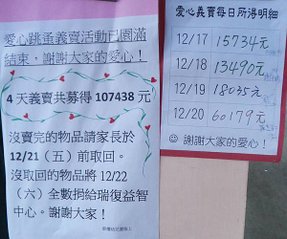 愛心跳蚤義賣活動已圓滿
結束，謝謝大家的愛心！
4 天義賣共募得 107438 元
沒賣完的物品請家長於
12/21（五）前取回。
沒取回的物品將 12/22
（六）全數捐給瑞復益智
中心。謝謝大家！
愛心義賣每日所得明細
12/17 15734元
12/18 13490元
12/19 18035元
12/20 60179元
☺ 謝謝大家的愛心！